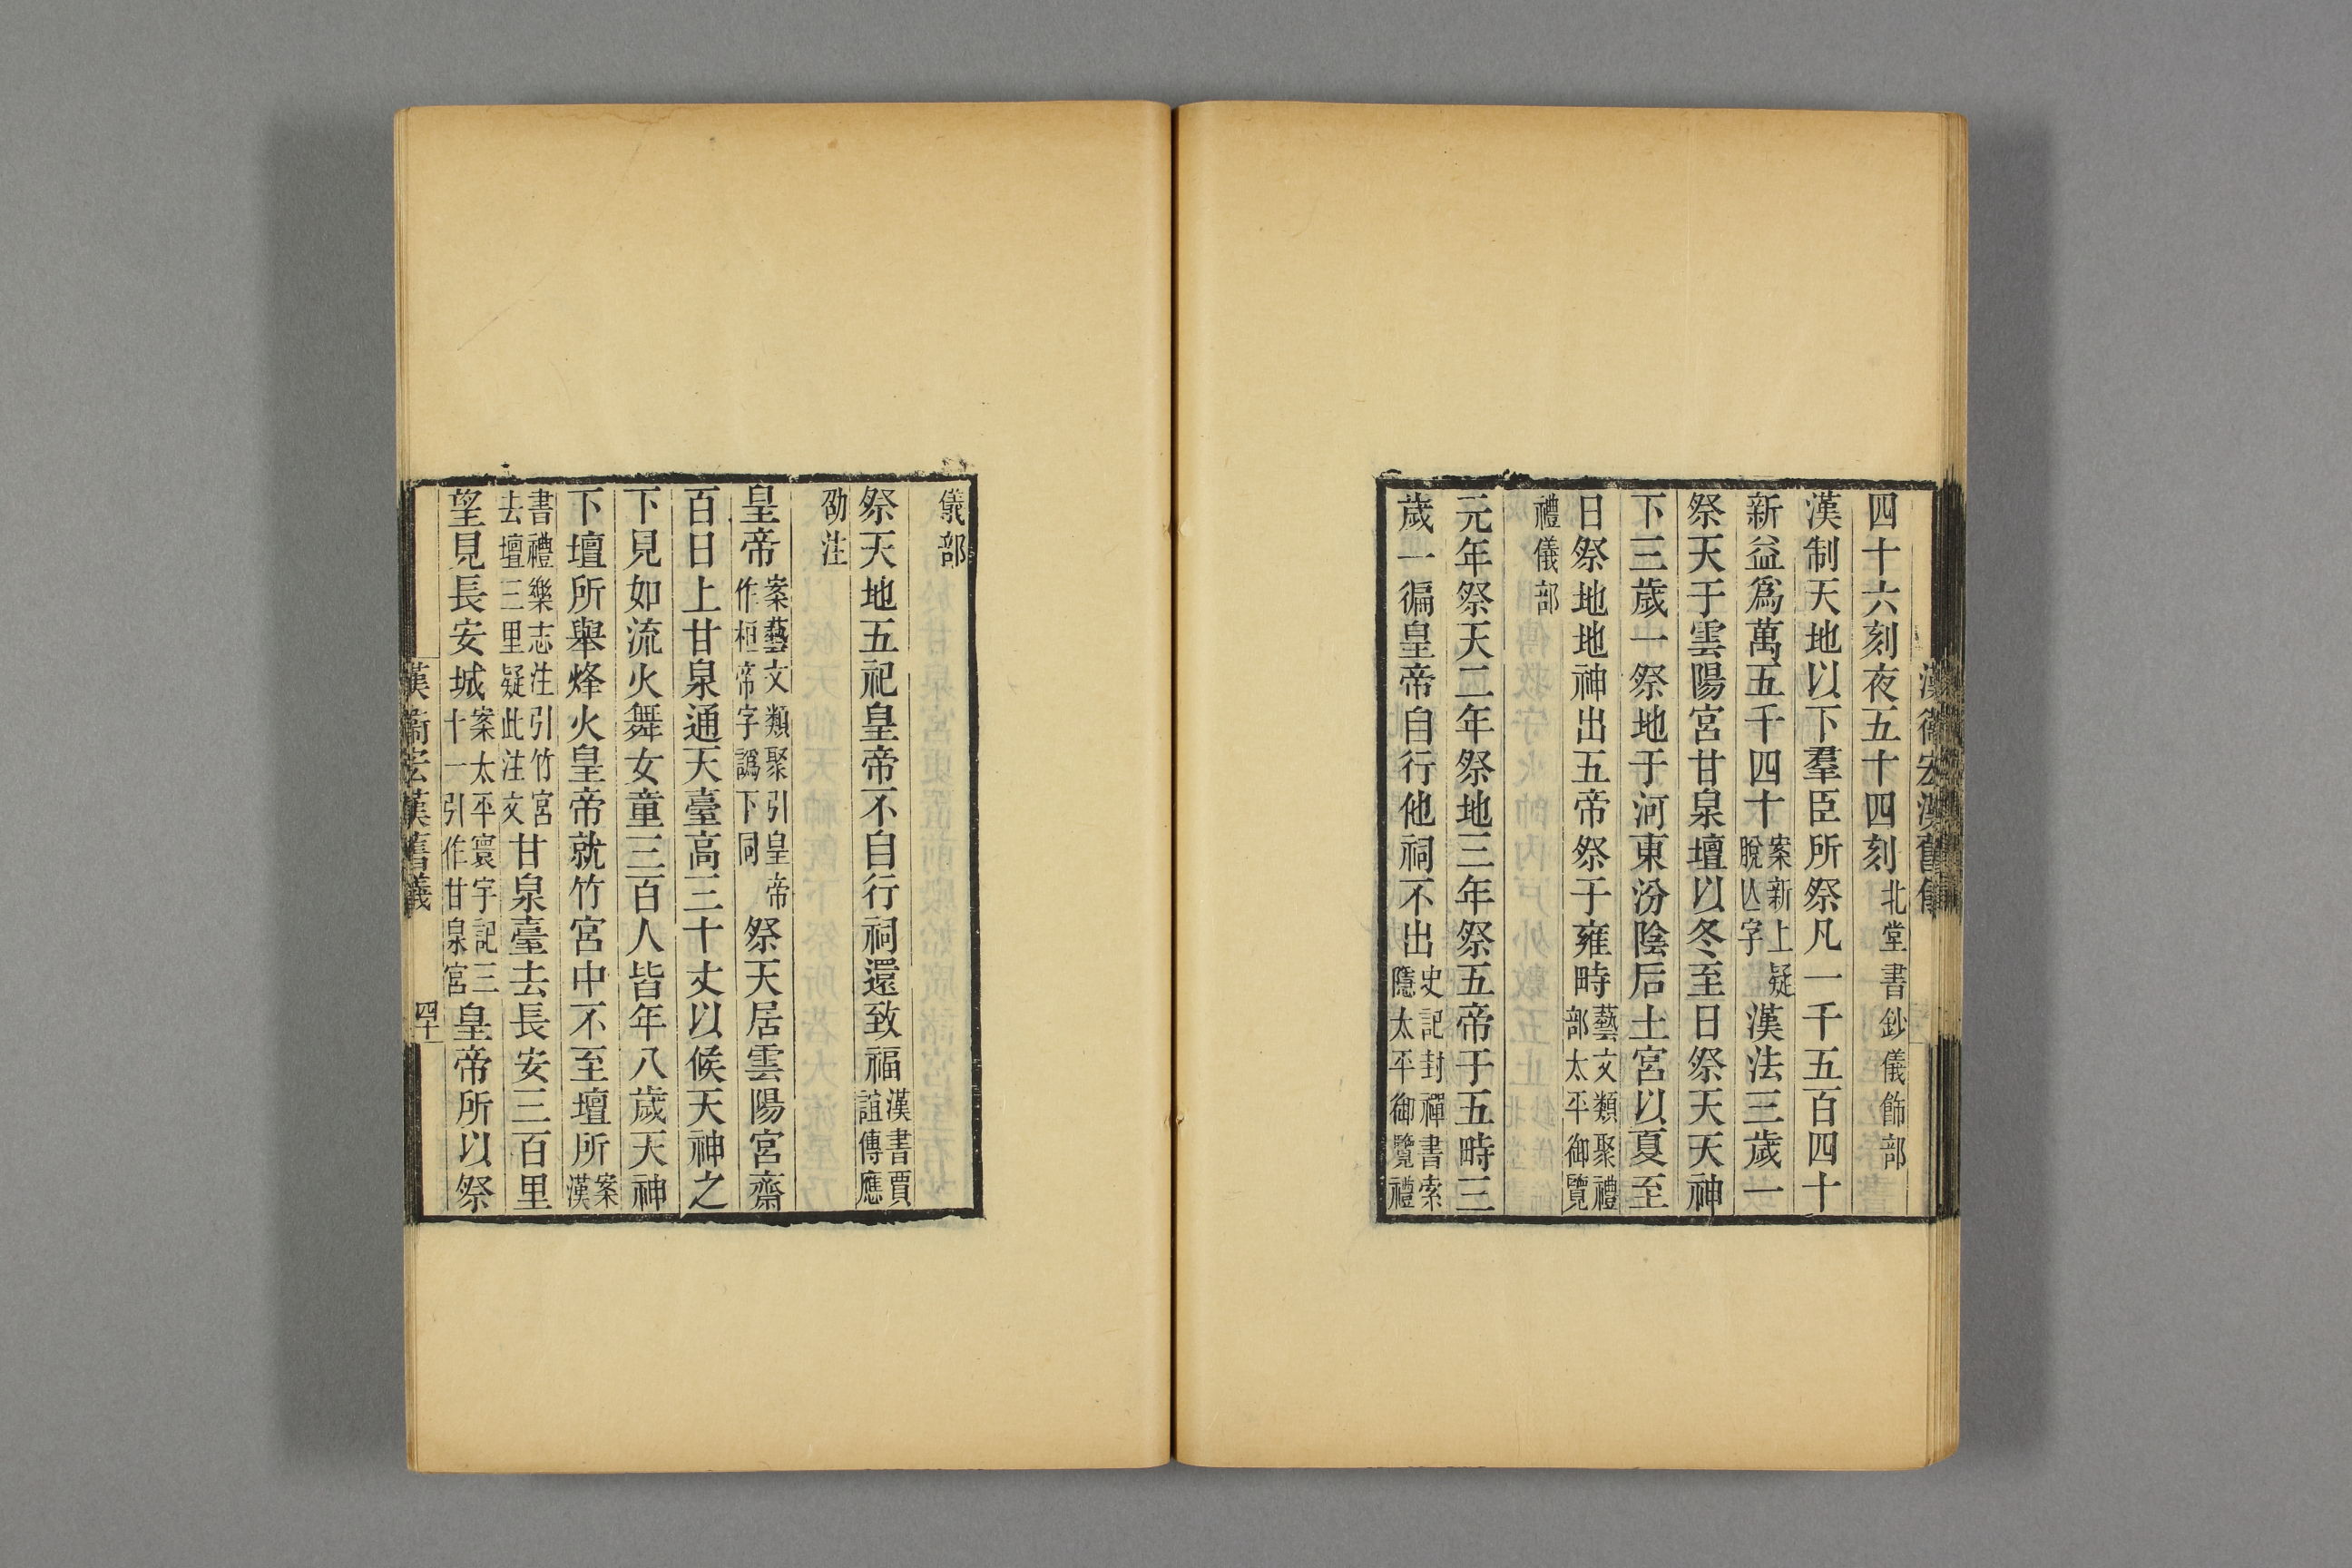 漢衞宏漢舊儀
四十六刻夜五十四刻北堂書鈔儀飾部
漢制天地以下羣臣所祭凡一千五百四十
新益爲萬五千四十案新上疑脫亾字漢法三歲一
祭天于雲陽宮甘泉壇以冬至日祭天天神
下三歲一祭地于河東汾陰后土宮以夏至
日祭地地神出五帝祭于雍畤藝文類聚禮部太平御覽
禮儀部
元年祭天二年祭地三年祭五帝于五畤三
歲一徧皇帝自行他祠不出史記封禪書索隱太平御覽禮
儀部
祭天地五祀皇帝不自行祠還致福漢書賈誼傳應
劭注
皇帝案藝文類聚引皇帝作桓帝字譌下同祭天居雲陽宮齋
百日上甘泉通天臺高三十丈以候天神之
下見如流火舞女童三百人皆年八歲天神
下壇所舉烽火皇帝就竹宮中不至壇所案漢
書禮樂志注引竹宮去壇三里疑此注文甘泉臺去長安三百里
望見長安城案太平寰宇記三十一引作甘泉宮皇帝所以祭
漢衞宏漢舊儀 四十